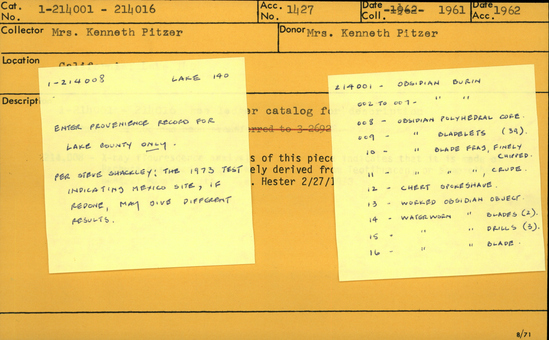 Cat. No. 1-214001 - 214016 Acc. No. 1427 Date Coll. 1962 1961 Date Acc. 1962
Collector Mrs. Kenneth Pitzer Donor Mrs. Kenneth Pitzer
Location
Descripti er catalog fe
erred to 3-2692
s of this piece
ely derived from
. Hester 2/27/1
1-214008 LAKE 140
ENTER PROVENIENCE RECORD FOR
LAKE COUNTY ONLY.
PER STEVE SHACKLEY: THE 1973 TEST
INDICATING MEXICO SITE, IF
REDONE, MAY GIVE DIFFERENT
RESULTS.
214001 - OBSIDIAN BURIN
002 TO 007 - " "
008 - OBSIDIAN POLYHEDRAL CORE.
009 - " BLADELETS (39)
10 - " BLADE FRAG, FINELY
CHIPPED.
11 - " " " , CRUDE.
12 - CHERT SPOKESHAVE.
13 - WORKED OBSIDIAN OBJECT.
14 - WATERWORN " BLADES (2).
15 - " " DRILLS (3).
16 - " " BLADE.
8/71